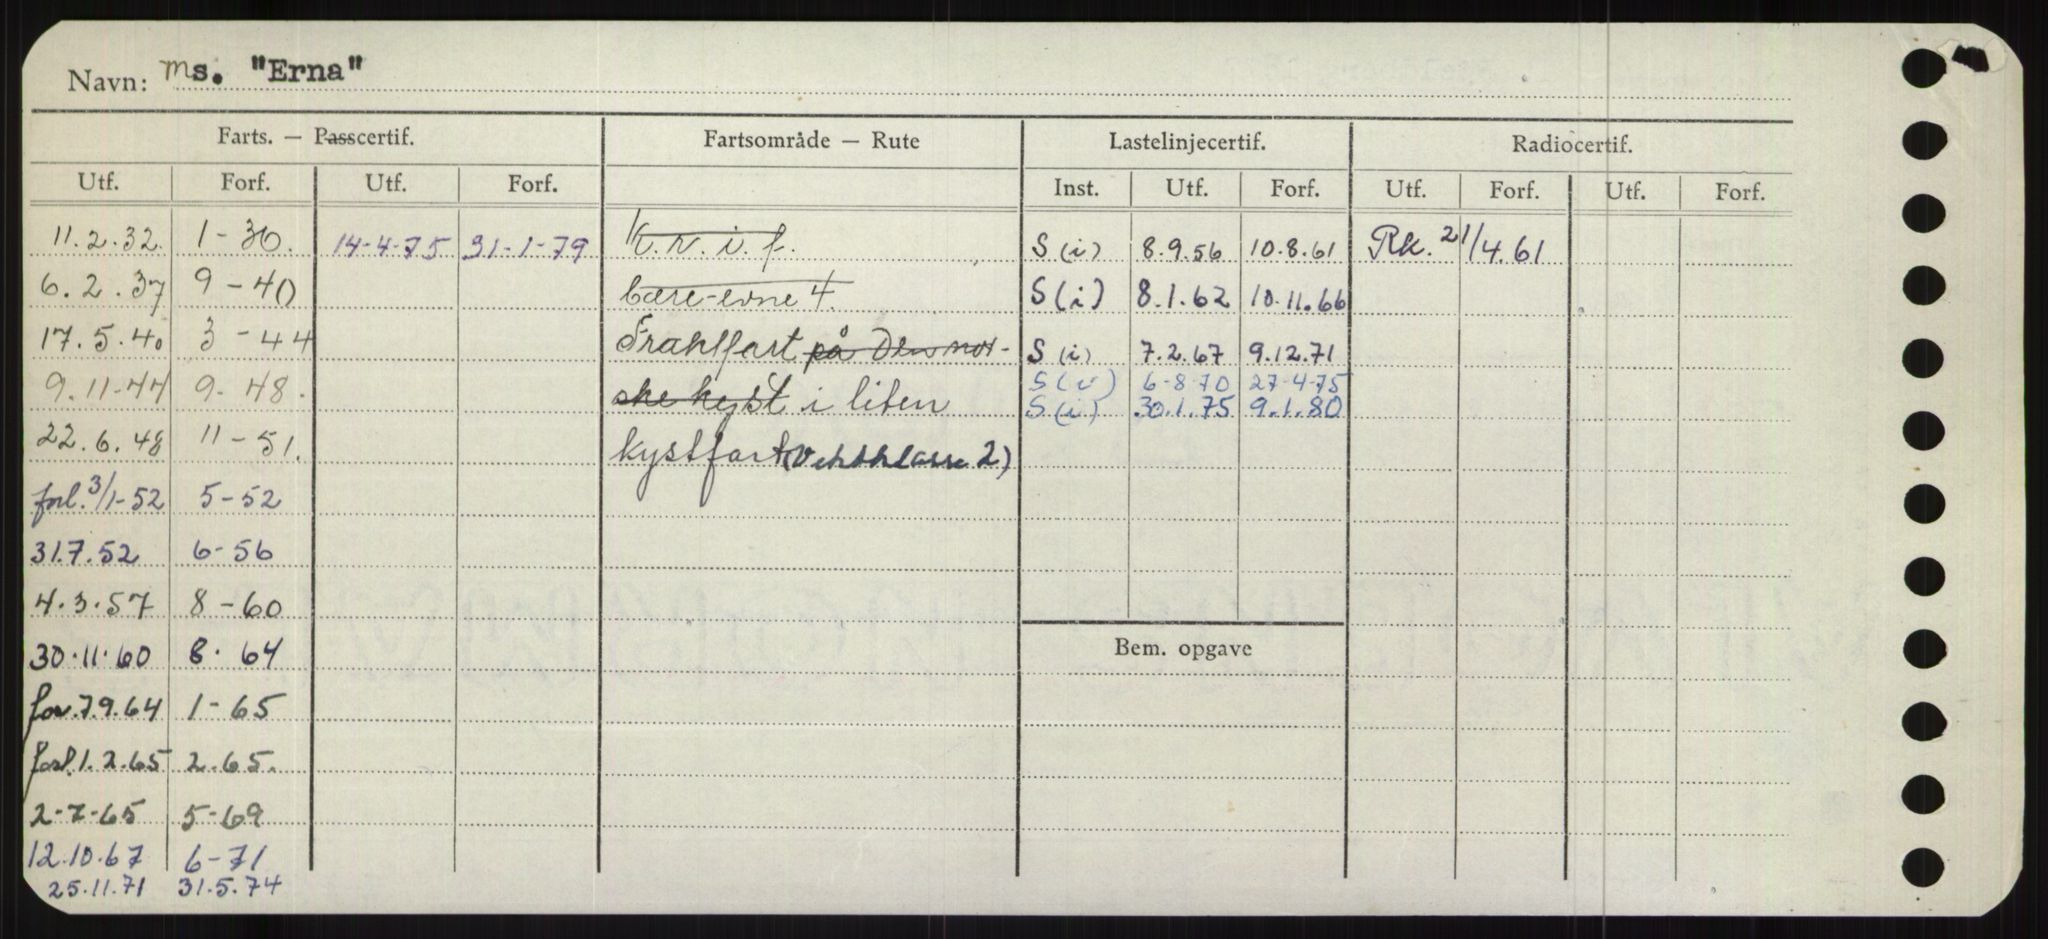 Navn: Ms. "Erna"
Farts. — Passcertif. Fartsområde — Rute Lastelinjecertif. Radiocertif.
Utf. Forf. Utf. Forf. Inst. Utf. Forf. Utf. Forf. Utf. Forf.
11.2.32. 1-36. 14-4-75 31-1-79 K.v.i.f. S(i) 8.9.56 10.8.61 Rk. 21/4.61
6.2.37 9-40 bære-evne 4. S(i) 8.1.62 10.11.66
17.5.40 3-44 Fraktfart på den nor- S(i) 7.2.67 9.12.71
9.11-44 9-48. ske kyst i liten S(i) 6-8-70 27-4-75
S(i) 30.1.75 9.1.80
22.6.48 11-51. kystfart (Vektklasse 2)
forl. 3/1-52 5-52
31.7.52 6-56
4.3.57 8-60
30.11.60 8.64 Bem. opgave
for. 7.9.64 1-65
forl. 1.2.65 2.65.
2-7-65 5-69
12.10.67 6-71
25.11.71 31.5.74